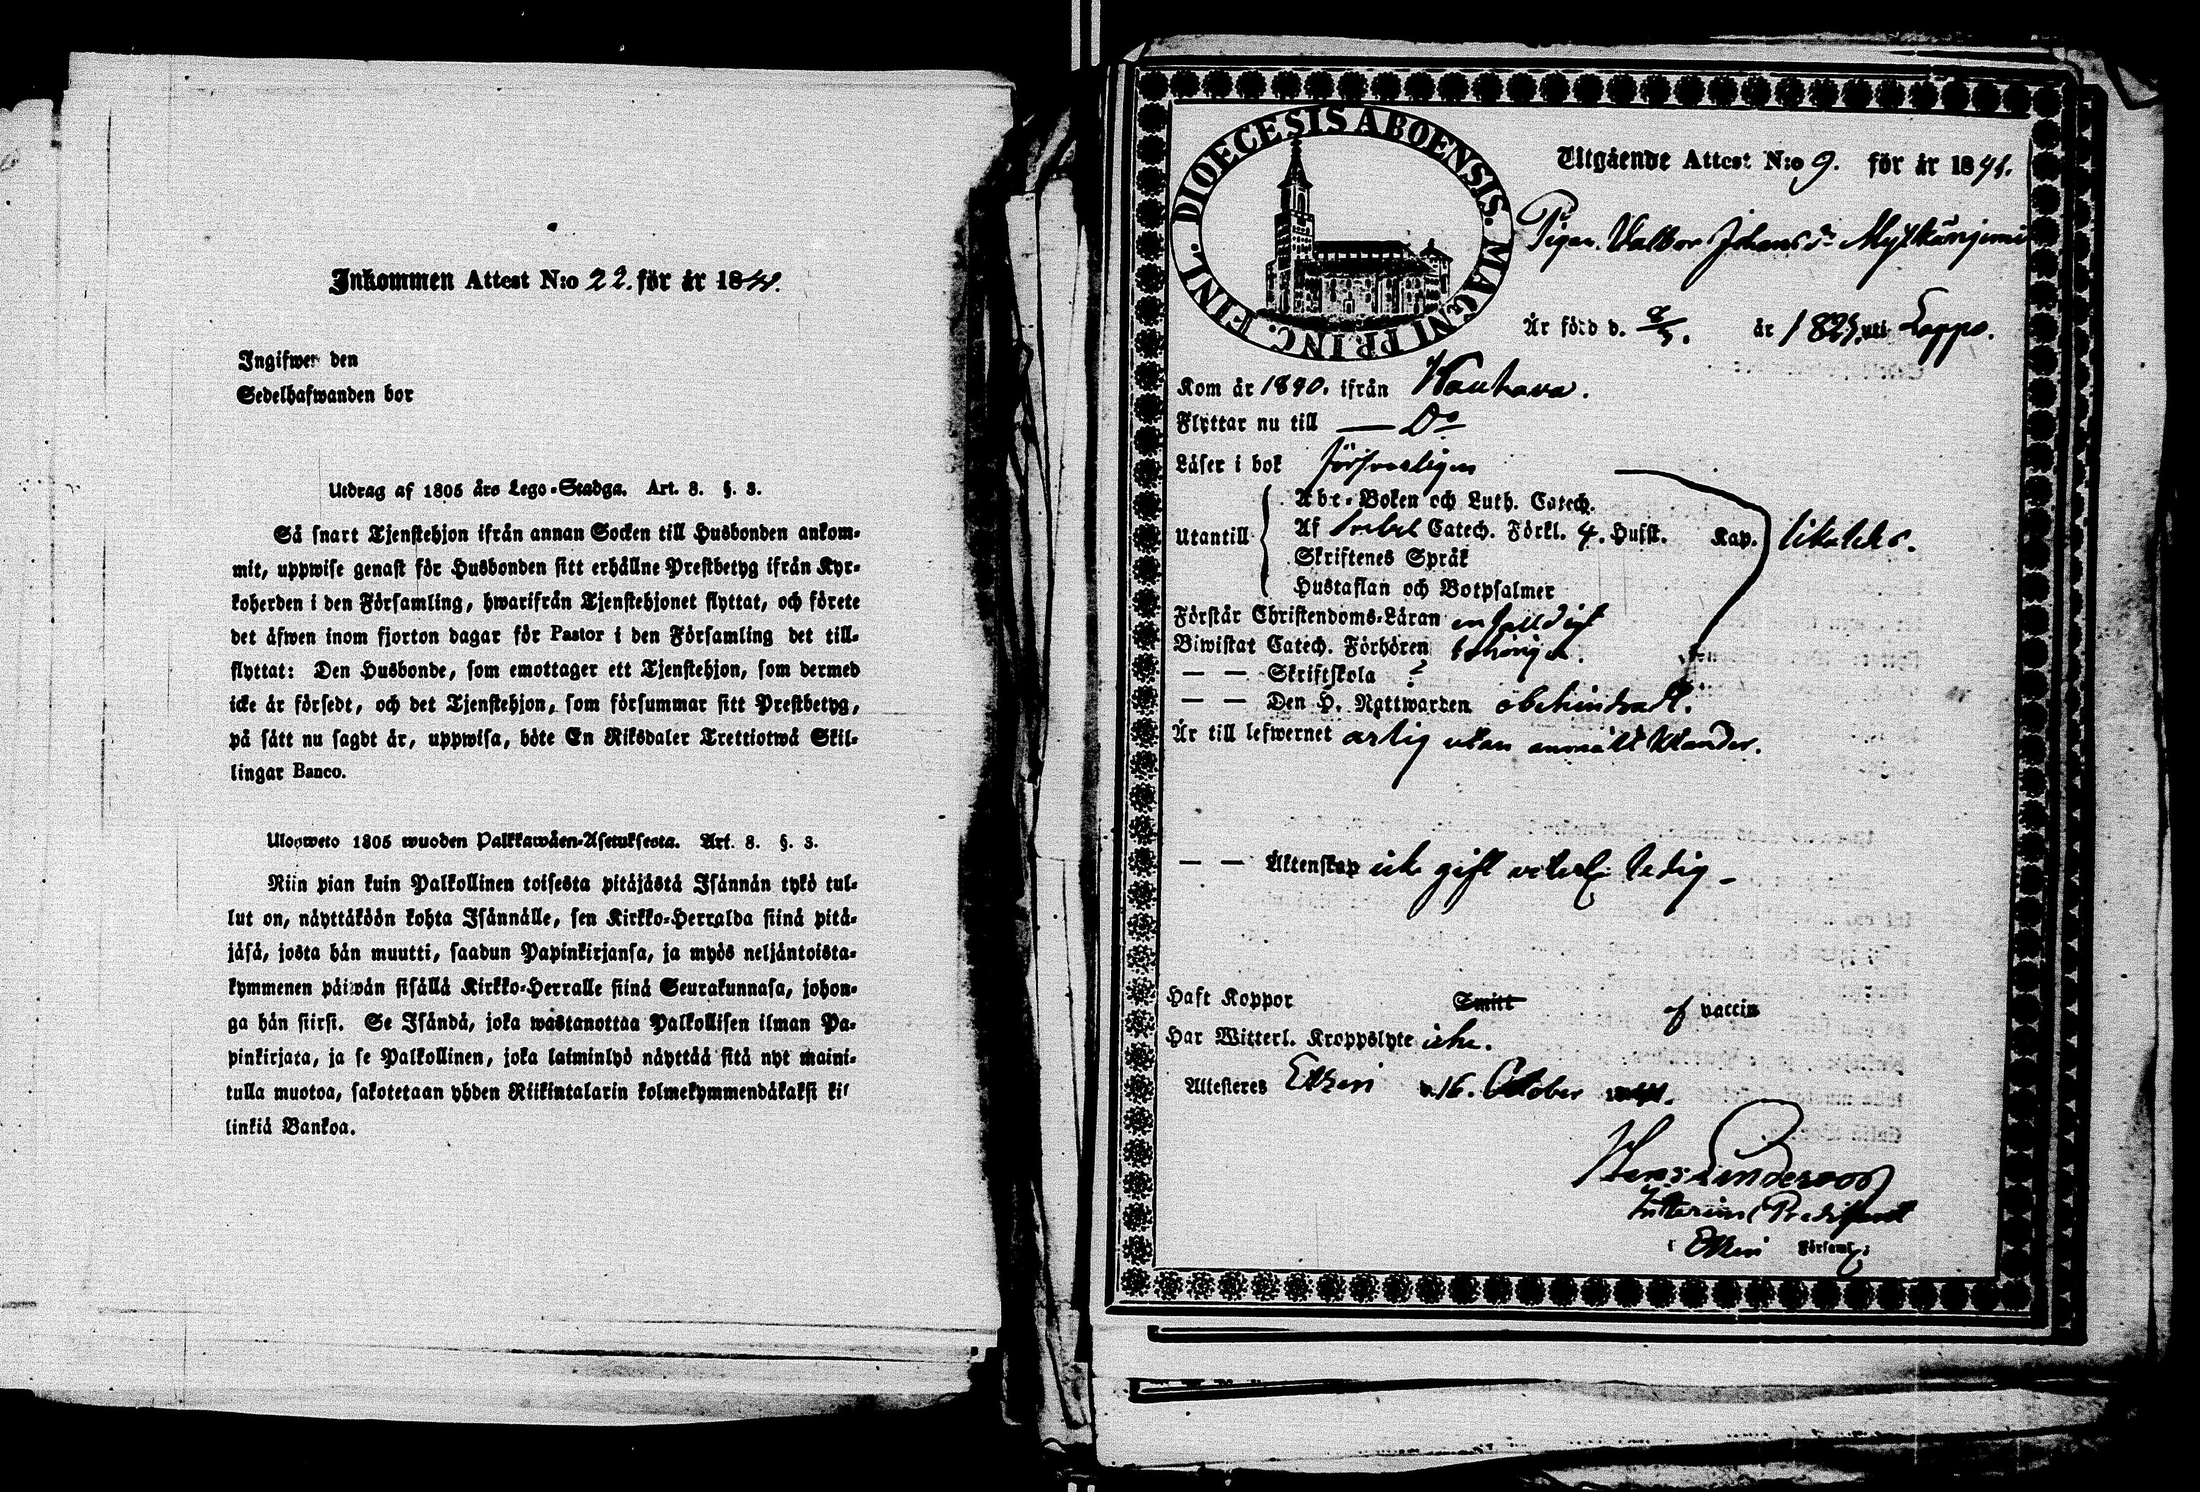 Inkommen Attest N:o 22. för år 184
Ingifwer den
Sedelhafwanden bor
Utdrag af 1805 års Lego-Stadga. Art. 8. §. 3.
Så snart Tjenstehjon ifrån annan Socken till Husbonden ankom-
mit, uppwise genast för Husbonden sitt erhållne Prestbetyg ifrån Kyr-
koherden i den Församling, hwarifrån Tjenstehjonet flyttat, och förete
det äfwen inom fjorton dagar för Pastor i den Församling det till-
flyttat: Den Husbonde, som emottager ett Tjenstehjon, som dermed
icke är försedt, och det Tjenstehjon, som försummar sitt Prestbetyg,
på sätt nu sagdt är, uppwisa, böte En Riksdaler Trettiotwå Skil-
lingar Banco.
Ulosweto 1805 wuoden Palkkawäen-Asetuksesta. Art. 8. §. 3.
Niin pian kuin Palkollinen toisesta pitäjästä Isännän tykö tul-
lut on, näyttäköön kohta Isännälle, sen Kirkko-Herralda siinä pitä-
jäsä, josta hän muutti, saadun Papinkirjansa, ja myös neljäntoista-
kymmenen päiwän sisällä Kirkko-Herralle siinä Seurakunnasa, johon-
ga hän siirsi. Se Isändä, joka wastanottaa Palkollisen ilman Pa-
pinkirjata, ja se Palkollinen, joka laiminlyö näyttää sitä nyt maini-
tulla muotoa, sakotetaan yhden Riikintalarin kolmekymmendäkaksi kil
linkiä Bankoa.
DIOECESIS ABOENSIS. MAGNI PRINC. FINL.
Utgående Attest N:o 9. för år 1841.
Pigan Valbor Johansdr
Är född d. år 182 uti Lappo.
Kom år 1840. ifrån Kauhava.
Flyttar nu till — Do
Läser i bok försvarligen
Utantill
Abc-Boken och Luth. Catech.
Af Catech. Förkl. 4. Hufst. Kap. likaledes.
Skriftenes Språk
Hustaflan och Botpsalmer
Förstår Christendoms-Läran enfaldigt
Biwistat Catech. Förhören behörigen.
— — Skriftskola ?
— — Den H. Nattwarden obehindradt.
Är till lefwernet arlig utan anmält klander.
— — Äktenskap icke gift veterl. ledig -
Haft Koppor Smitt af vaccin
Har Witterl. Kroppslyte icke.
Attesteres Etseri d. 16. October 1841.
Interims Predikant
i Etseri Församl: